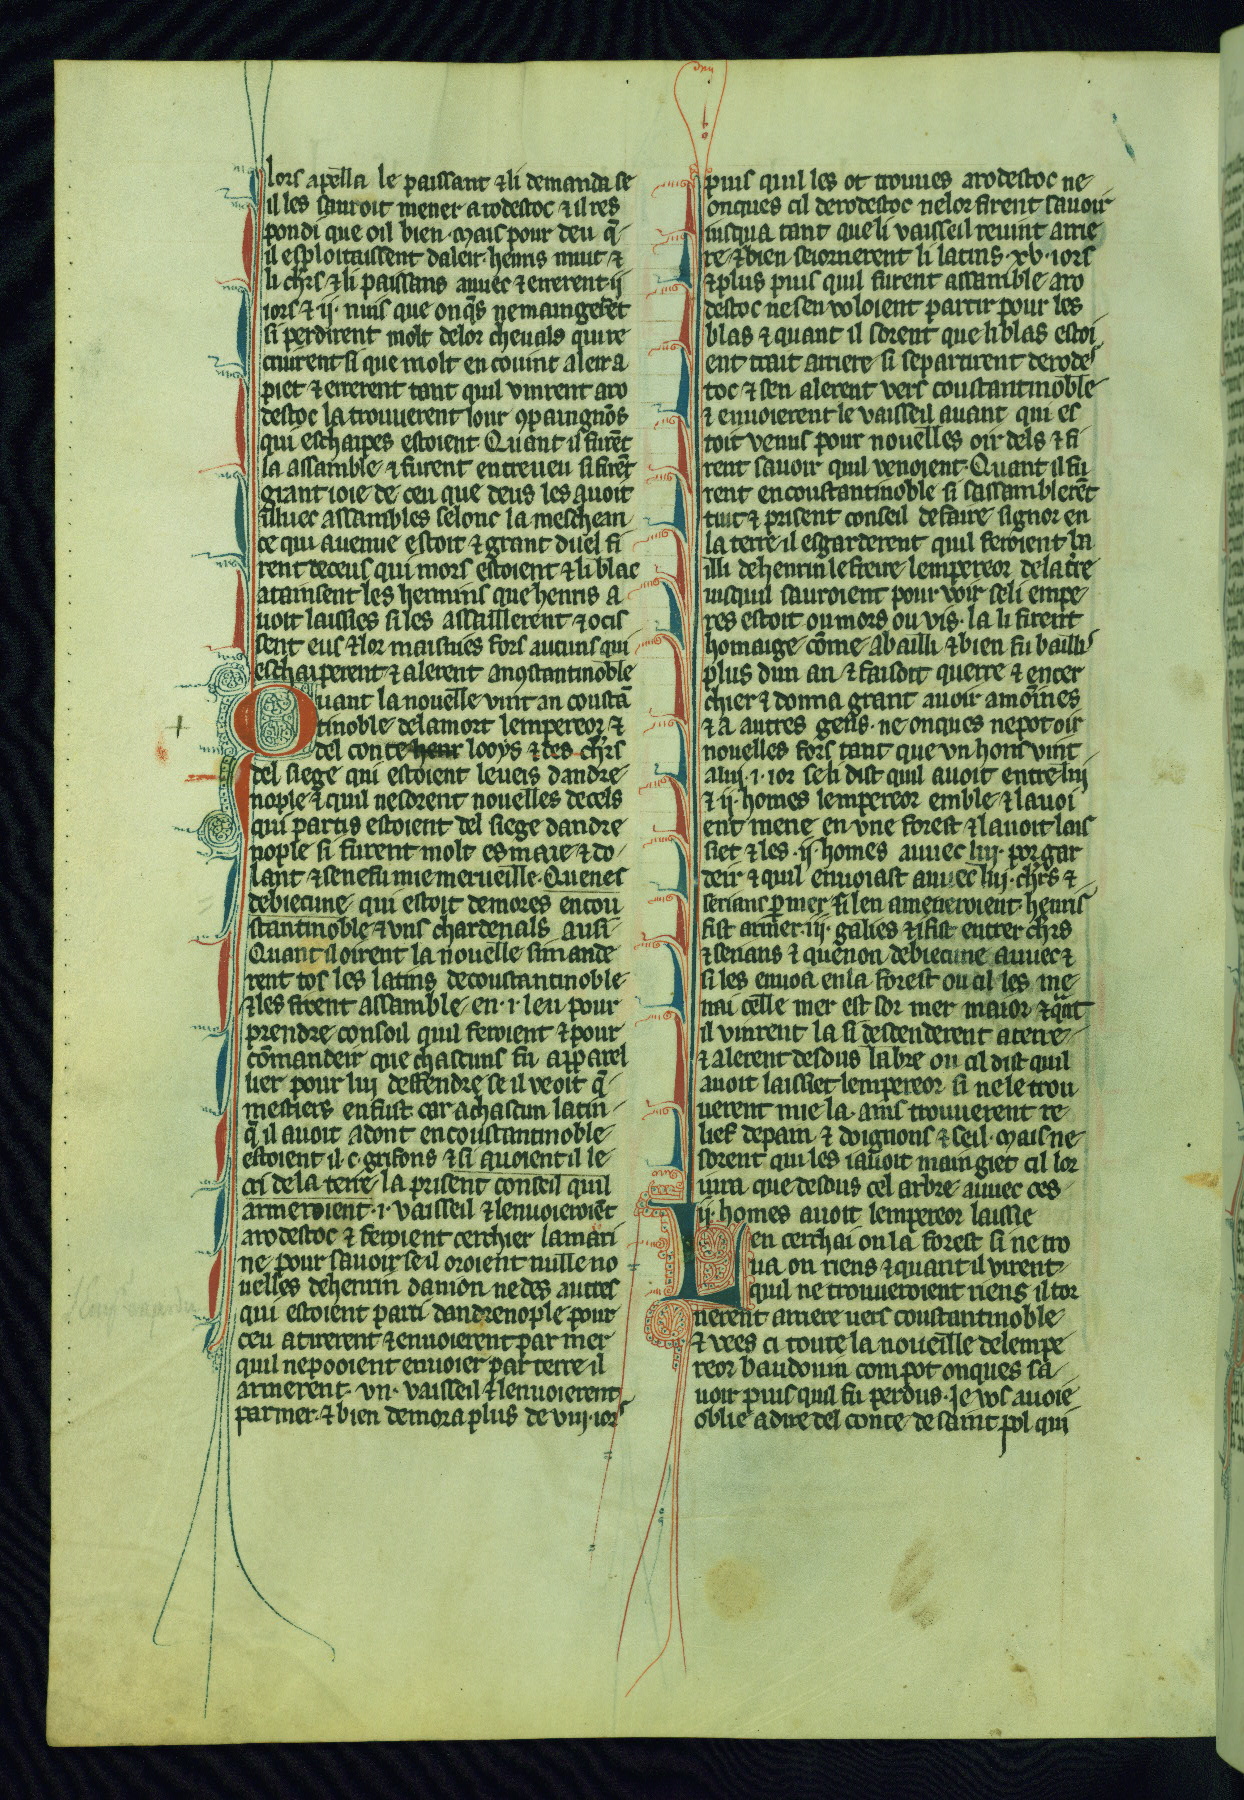 lors apella le paissant ⁊ li demanda se
il les sauroit mener a rodestoc ⁊ il res
pondi que oil bien· mais pour deu q̄
il esploitaissent daleir· henris mut ⁊
li chr̄s ⁊ li paissans auuec ⁊ errerent ij
iors ⁊ ij· nuis que onq̄s ne maingerēt
si perdirent molt de lor cheuals qui re
crurent si que molt en couint aleir a
piet ⁊ errerent tant quil vinrent a ro
destoc la trouuerent lour ꝯpaingnōs
qui eschaipes estoient· Quant il furēt
la assamble ⁊ furent entreueu si firēt
grant ioie de ceu que deus les auoit
illuec assambles selonc la meschean
ce qui auenue estoit ⁊ grant duel fi
rent de ceus qui mors estoient ⁊ li blac
atainsent les hermins que henris a
uoit laissies si les assaillerent ⁊ ocis
sent eus ⁊ lor maisnies fors aucuns qui
eschaiperent ⁊ alerent an ꝯstantinoble
Quant la nouelle vint an coustā
tinoble de la mort lempereor ⁊
del conte henr looys ⁊ des chr̄s
del siege qui estoient leueis dandre
nople ⁊ quil ne sorent nouelles de cels
qui partis estoient del siege dandre
nople si furent molt esmaie ⁊ do
lant ⁊ se ne fu mie merueille· Quenes
de biecune qui estoit demores en cou
stantinoble ⁊ vns chardenals ausi
Quant il oirent la nouelle si mande
rent tos les latins de coustantinoble
⁊ les firent assamble en ·i· leu pour
prendre consoil quil feroient ⁊ pour
cōmandeir que chascuns fu apparel
lier pour lui deffendre se il veoit q̄
mestiers en fust car a chascun latin
q̄ il auoit adont en coustantinoble
estoient il ·c· grifons ⁊ si auoient il le
cri de la terre la prisent conseil quil
armeroient ·i· vaissel ⁊ lenuoieroiēt
a rodestoc ⁊ feroient cerchier la mari
ne pour sauoir se il oroient nulle no
uelles de henrin damon ne des autres
qui estoient parti dandrenople pour
ceu atirerent ⁊ enuoierent par mer
quil ne pooient enuoier par terre il
armerent· vn· vaisseil ⁊ lenuoierent
par mer ⁊ bien demora plus de viij· iors
puis quil les ot trouues a rodestoc ne
onques cil de rodestoc ne lor firent sauoir
iusqua tant que li vaisseil reuint arrie
re ⁊ bien seiornerent li latins ·xv· iors
⁊ plus puis quil furent assamble a ro
destoc ne sen voloient partir pour les
blas ⁊ quant il sorent que li blas estoi
ent trait arriere si se partirent de rodes
toc ⁊ sen alerent vers coustantinoble
⁊ enuoierent le vaisseil auant qui es
toit venus pour nouelles oir dels ⁊ fi
rent sauoir quil venoient· Quant il fu
rent en coustantinoble si sassamblerēt
tuit ⁊ prisent conseil de faire signor en
la terre il esgarderent quil feroient ba
illi de henrin le freire lempereor de la tr̄e
iusquil sauroient pour voir se li empe
res estoit ou mors ou vis· la li firent
homaige cōme a bailli ⁊ bien fu baillis
plus dun an ⁊ faisoit querre ⁊ encer
chier ⁊ donna grant auoir a moinnes
⁊ a autres gens· ne onques ne pot oir
nouelles fors tant que vn hons vint
a lui ·i· ior se li dist quil auoit entre lui
⁊ ij· homes lempereor emble ⁊ lauoi
ent mene en vne forest ⁊ lauoit lais
siet ⁊ les ·ij· homes auuec lui por gar
deir ⁊ quil enuoiast auuec lui· chr̄s ⁊
serians p̱ mer si len ameneroient· henris
fist armer iij· galies ⁊ i fist entrer chr̄s
⁊ serians ⁊ quenon de biecune auuec ⁊
si les enuoa en la forest ou cil les me
nai celle mer est sor mer maior ⁊ qāt
il vinrent la si descenderent a terre
⁊ alerent desdus labre ou cil dist quil
auoit laissiet lempereor si ne le trou
uerent mie la· ains trouuerent re
lief de pain ⁊ doignons ⁊ seil· mais ne
sorent qui les i auoit maingiet cil lor
iura que desdus cel arbre auuec ces
ij· homes auoit lempereor laissie
Len cerchai on la forest si ne tro
ua on riens ⁊ quant il virent
quil ne trouueroient riens il tor
nerent arriere uers coustantinoble
⁊ vees ci toute la noueille de lempe
reor baudouin com pot onques sa
uoir puis quil fu perdus· Je vos auoie
oblie a dire del conte de saint pol qui